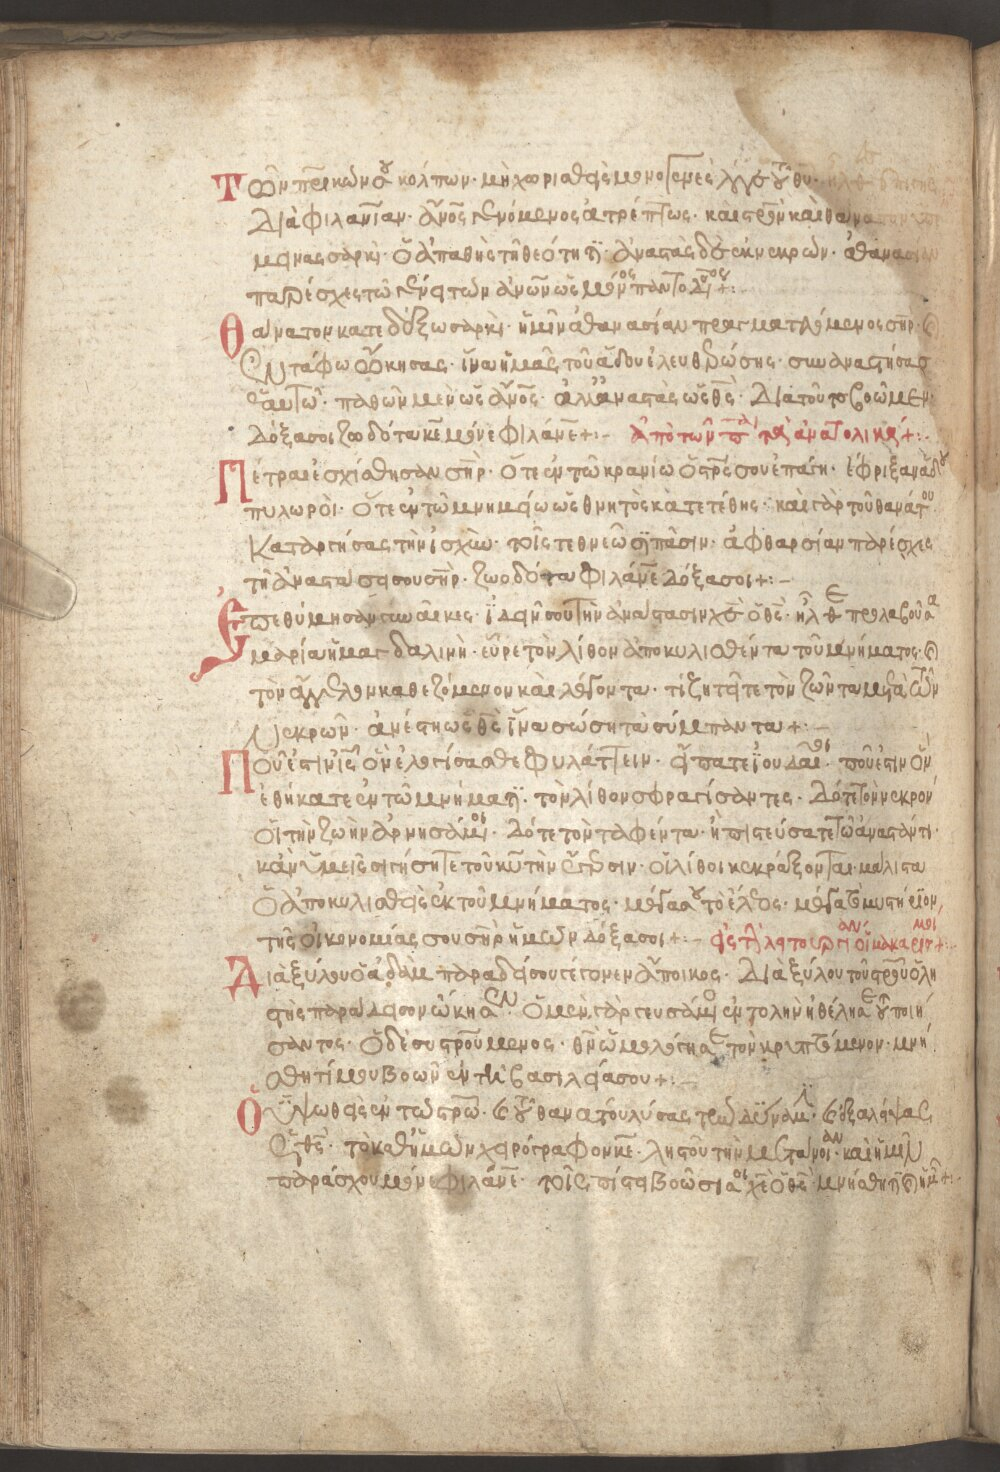 Τῶν πρικῶν σου κόλπων· μὴ χωρισθεὶς μονογενὲς λόγε τοῦ θυ·
Διὰ φιλανίαν· ἄνος γενόμενος ἀτρέπτως· καὶ στρὸν καὶ θάνατον
μείνας σαρκὶ· ὁ ἀπαθὴς τῆ θεότητι· ἀναστὰς δὲ ἐκ νεκρῶν· ἀθανασίαν
παρέσχες τῶ γένει τῶν ἀνων ὡς μόνος παντοδύ +:
Θάνατον κατεδέξω σαρκὶ· ἡμῖν ἀθανασίαν πραγματευόμενος σηρ·
ἐν τάφω ὤκησας· ἵνα ἡμᾶς τοῦ ἅδου ἐλευθερώσης· συναναστήσας
ἑαυτῶ· παθὼν μὲν ὡς ἄνος· ἀλλ' ἀναστὰς ὡς θς· Διὰ τοῦτο βοῶμεν·
δόξα σοι ζωοδότα κε μόνε φιλάνε +:-
Πέτραι ἐσχίσθησαν σηρ· ὅτε ἐν τῶ κρανίω ὁ στρός σου ἐπάγη· ἔφριξαν ἅδου
πυλωροὶ· ὅτε ἐν τῶ μνημείω ὡς θνητὸς κατετέθης· καὶ γὰρ τοῦ θανάτου
καταργήσας τὴν ἰσχὺν· τοῖς τεθνεῶσι πᾶσιν· ἀφθαρσίαν παρέσχες
τῆ ἀναστάσει σου σηρ· ζωοδότα φιλάνε δόξα σοι +:-
Ἐπεθύμησαν γυναῖκες· ἰδεῖν σου τὴν ἀνάστασιν χε ὁ θς· ἦλθε προλαβοῦσα
μαρία ἡ μαγδαλινὴ· εὗρε τὸν λίθον ἀποκυλισθέντα τοῦ μνήματος·
τὸν ἄγγελον καθεζόμενον καὶ λέγοντα· τί ζητεῖτε τὸν ζῶντα μετὰ τῶν
νεκρῶν· ἀνέστη ὡς θς ἵνα σώση τὰ σύμπαντα +:-
Ποῦ ἐστιν ις ὃν ἐλογίσασθε φυλάττειν· εἴπατε ἰουδαῖοι· ποῦ ἐστιν ὃν
ἐθήκατε ἐν τῶ μνήματι· τὸν λίθον σφραγίσαντες· δότε τὸν νεκρὸν
οἱ τὴν ζωὴν ἀρνησάμενοι· δότε τὸν ταφέντα· ἢ πιστεύσατε τῶ ἀναστάντι·
κἂν ὑμεῖς σιγήσητε τοῦ κυ τὴν ἔγερσιν· οἱ λίθοι κεκράξονται· μάλιστα
ὁ ἀποκυλισθεὶς ἐκ τοῦ μνήματος· μέγα σου τὸ ἔλεος· μέγα τὸ μυστήριον
τῆς οἰκονομίας σου σηρ ἡμῶν δόξα σοι +:-
Διὰ ξύλου ὁ ἀδὰμ παραδείσου γέγονεν ἄποικος· διὰ ξύλου τοῦ στρου ὁ λη
στὴς παράδεισον ὤκησεν· ὁ μὲν γὰρ γευσάμενος ἐντολὴν ἠθέτησε τοῦ ποιή
σαντος· ὁ δὲ συστρούμενος· θν ὡμολόγησε τὸν κρυπτόμενον· μνή
σθητί μου βοῶν ἐν τῆ βασιλεία σου +:-
Ὁ ὑψωθεὶς ἐν τῶ στρω· τοῦ θανάτου λύσας τὴν δύναμιν· ἐξαλείψας
ὡς θς· τὸ καθ' ἡμῶν χειρόγραφον κε· ληστοῦ τὴν μετάνοιαν· καὶ ἡμῖν
παράσχου μόνε φιλάνε· τοῖς πίστει βοῶσι χε ὁ θς· μνήσθητι ἡμῶν +:-